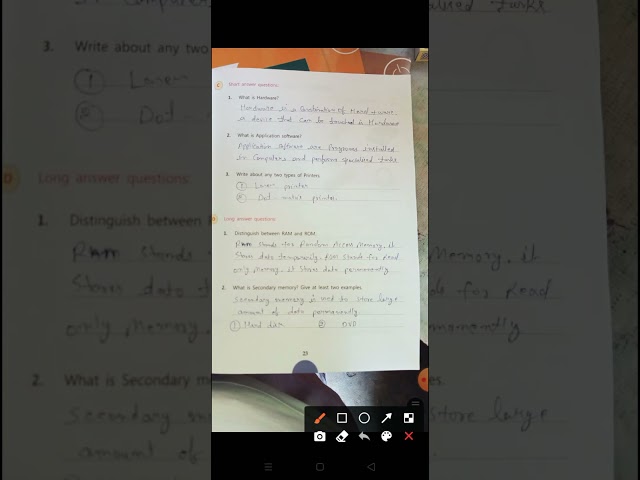 C Short answer questions:
1. What is Hardware?
Hardware is a Combination of Hard + ware.
A device that can be touched is Hardware
2. What is Application software?
Application Software are Programs installed
in Computers and perform specialised tasks
3. Write about any two types of Printers.
① Laser printer
② Dot printer.
D Long answer questions:
1. Distinguish between RAM and ROM.
RAM stands for Random Access Memory. it
Stores data temporarily. ROM Stands for Read
only Memory. it Stores data permanently.
2. What is Secondary memory? Give at least two examples.
Secondary memory is used to store large
amount of data permanently.
① Hard ② DVD
23